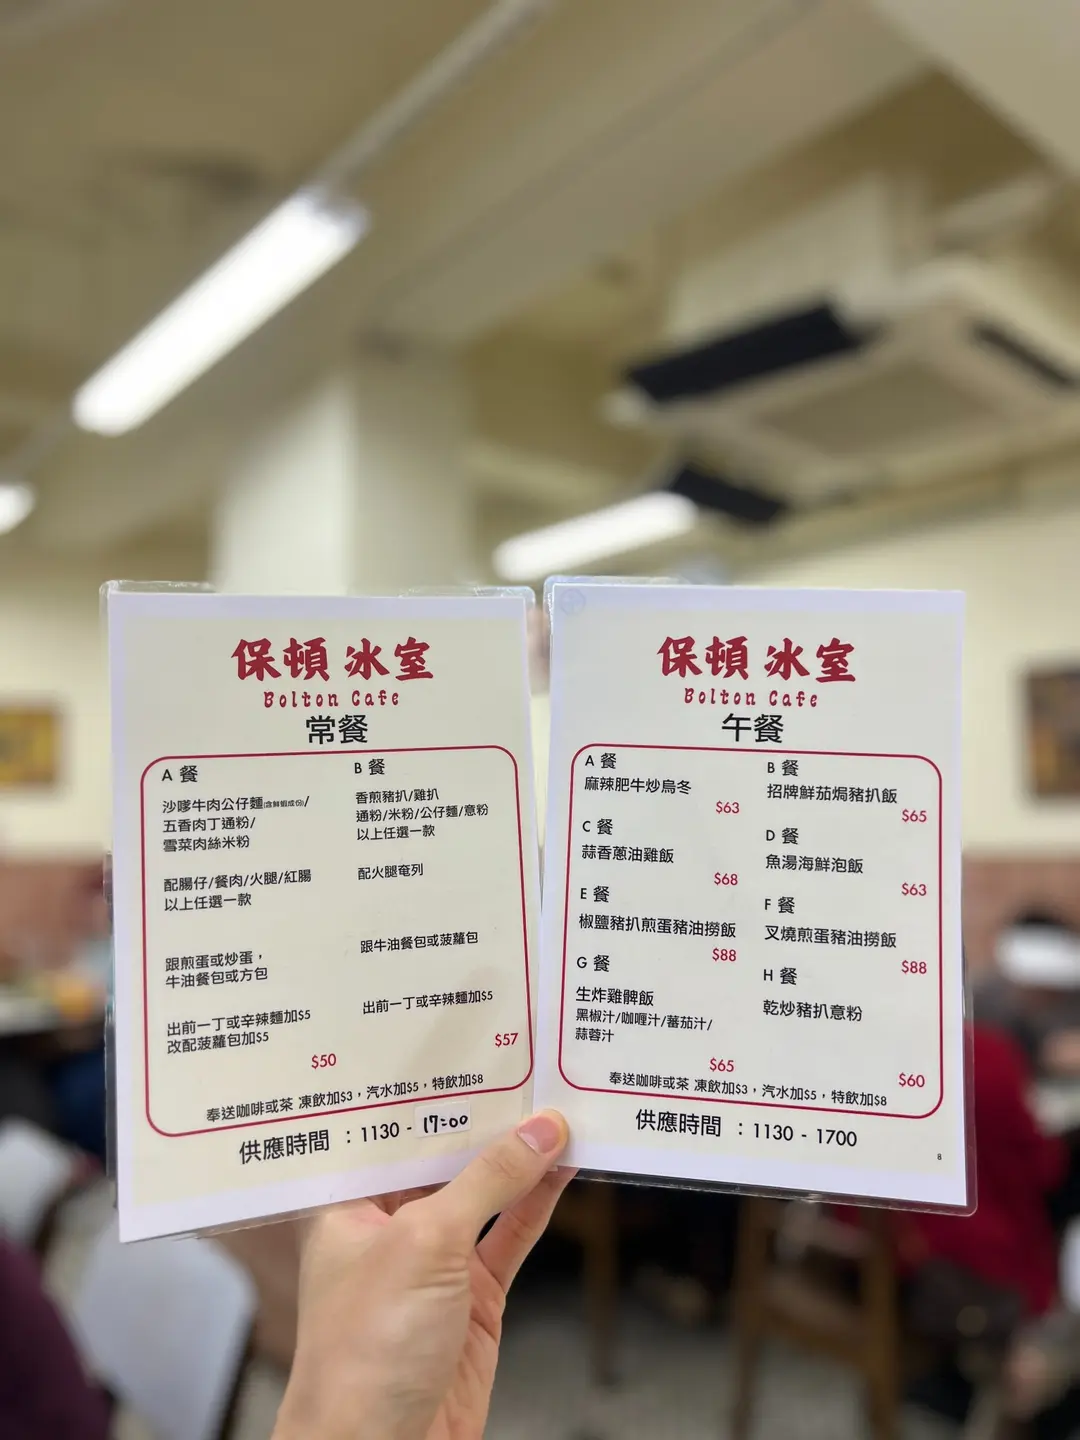 保頓冰室
Bolton Cafe
常餐
A 餐
沙嗲牛肉公仔麵(含鮮蝦成份)/
五香肉丁通粉/
雪菜肉絲米粉
配腸仔/餐肉/火腿/紅腸
以上任選一款
跟煎蛋或炒蛋，
牛油餐包或方包
出前一丁或辛辣麵加$5
改配菠蘿包加$5
$50
B 餐
香煎豬扒/雞扒
通粉/米粉/公仔麵/意粉
以上任選一款
配火腿奄列
跟牛油餐包或菠蘿包
出前一丁或辛辣麵加$5
$57
奉送咖啡或茶 凍飲加$3，汽水加$5，特飲加$8
供應時間 ：1130 - 17:00
保頓冰室
Bolton Cafe
午餐
A 餐
麻辣肥牛炒烏冬
$63
B 餐
招牌鮮茄焗豬扒飯
$65
C 餐
蒜香蔥油雞飯
$68
D 餐
魚湯海鮮泡飯
$63
E 餐
椒鹽豬扒煎蛋豬油撈飯
$88
F 餐
叉燒煎蛋豬油撈飯
$88
G 餐
生炸雞髀飯
黑椒汁/咖喱汁/蕃茄汁/
蒜蓉汁
$65
H 餐
乾炒豬扒意粉
$60
奉送咖啡或茶 凍飲加$3，汽水加$5，特飲加$8
供應時間 ：1130 - 1700
8